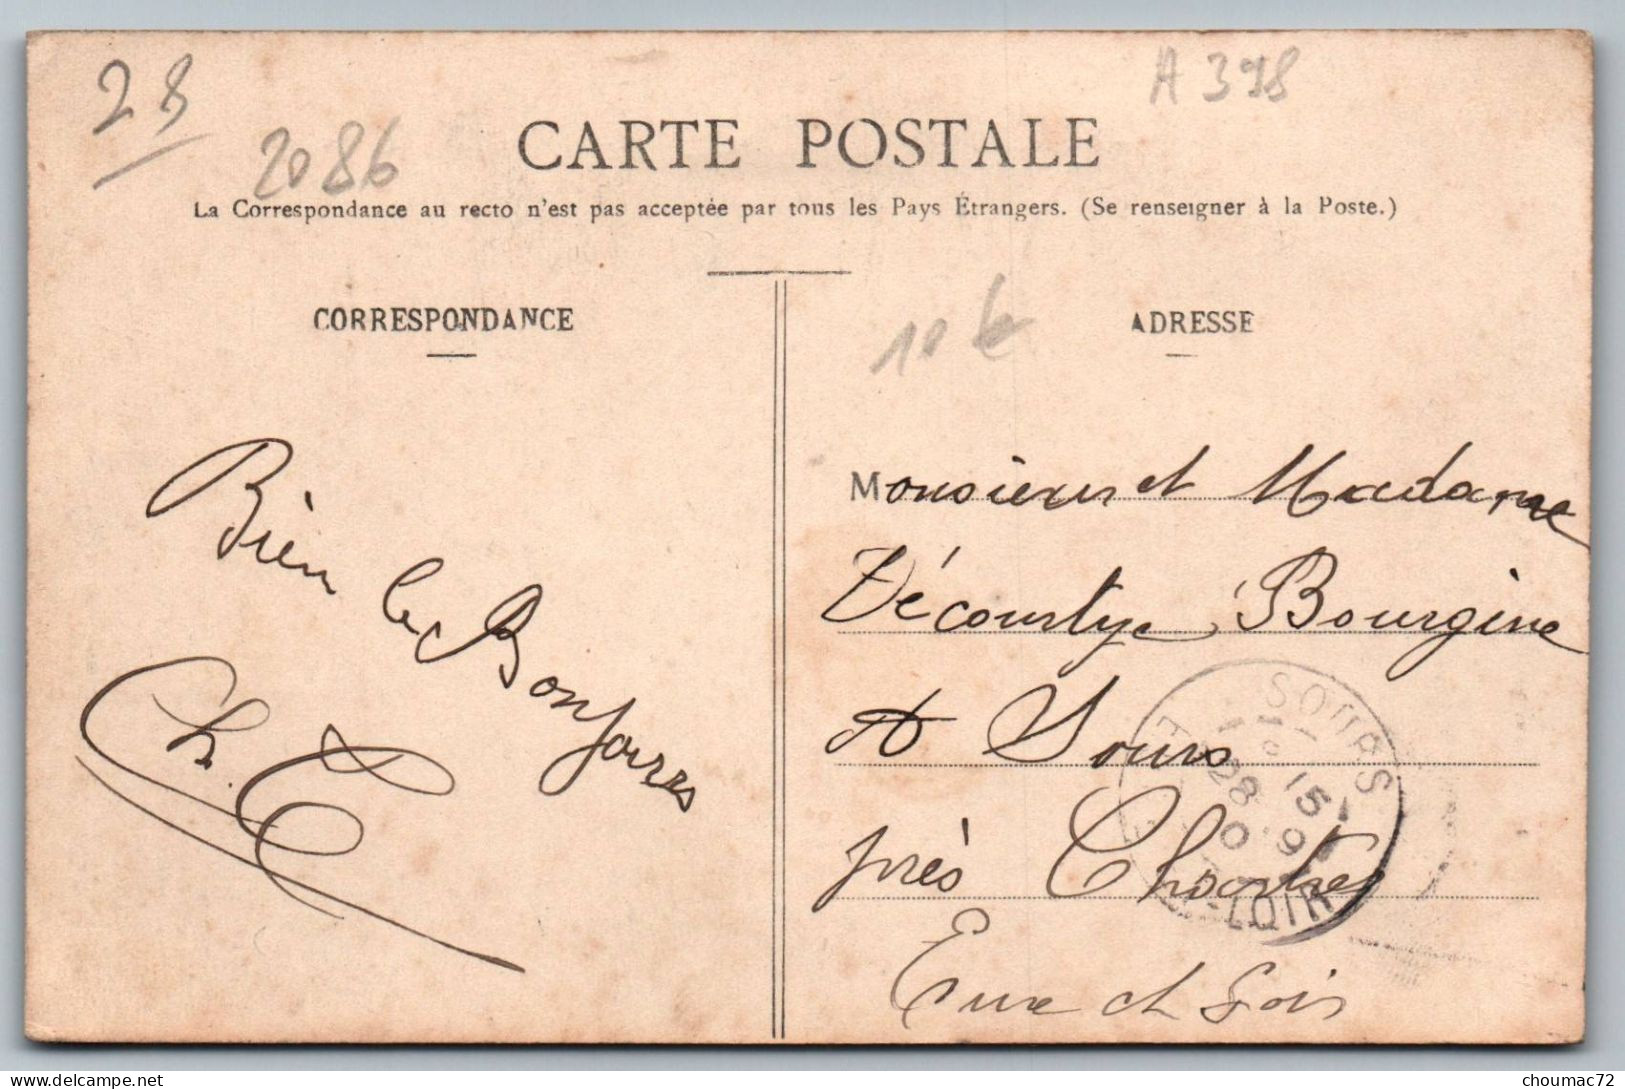 28
2086
A 398
CARTE POSTALE
La Correspondance au recto n'est pas acceptée par tous les Pays Étrangers. (Se renseigner à la Poste.)
CORRESPONDANCE
ADRESSE
10 €
Bien le Bonjour
Ch. E
Monsieur et Madame
Décourtye Bourgine
A Sours
près Chartres
Eure et Loir
SOURS
15
28 9
LOIR
choumac72